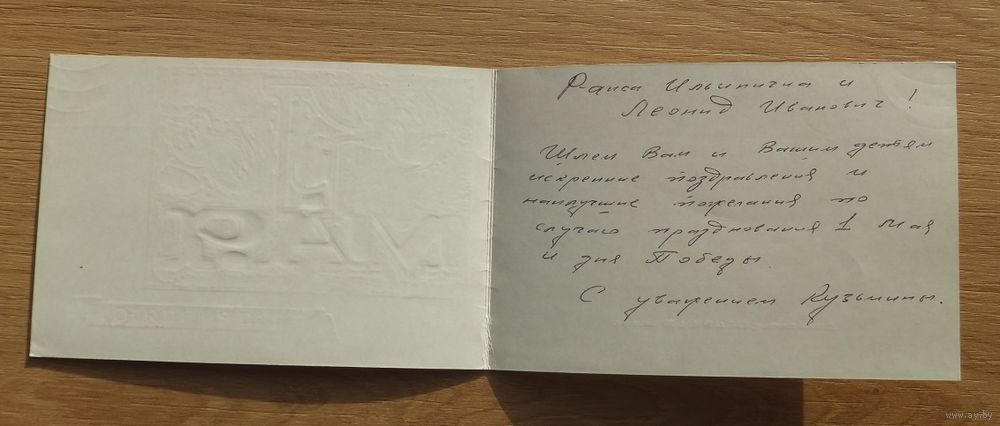 Раиса Ильинична и
Леонид Иванович!
Шлем Вам и Вашим детям
искренние поздравления и
наилучшие пожелания по
случаю празднования 1 Мая
и дня Победы.
С уважением Кузьмины.
www.ay.by